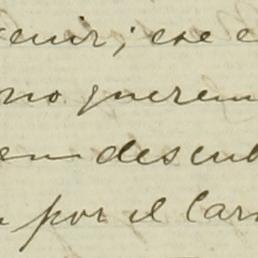 venir; ese e
no querem
en descub
por el Car